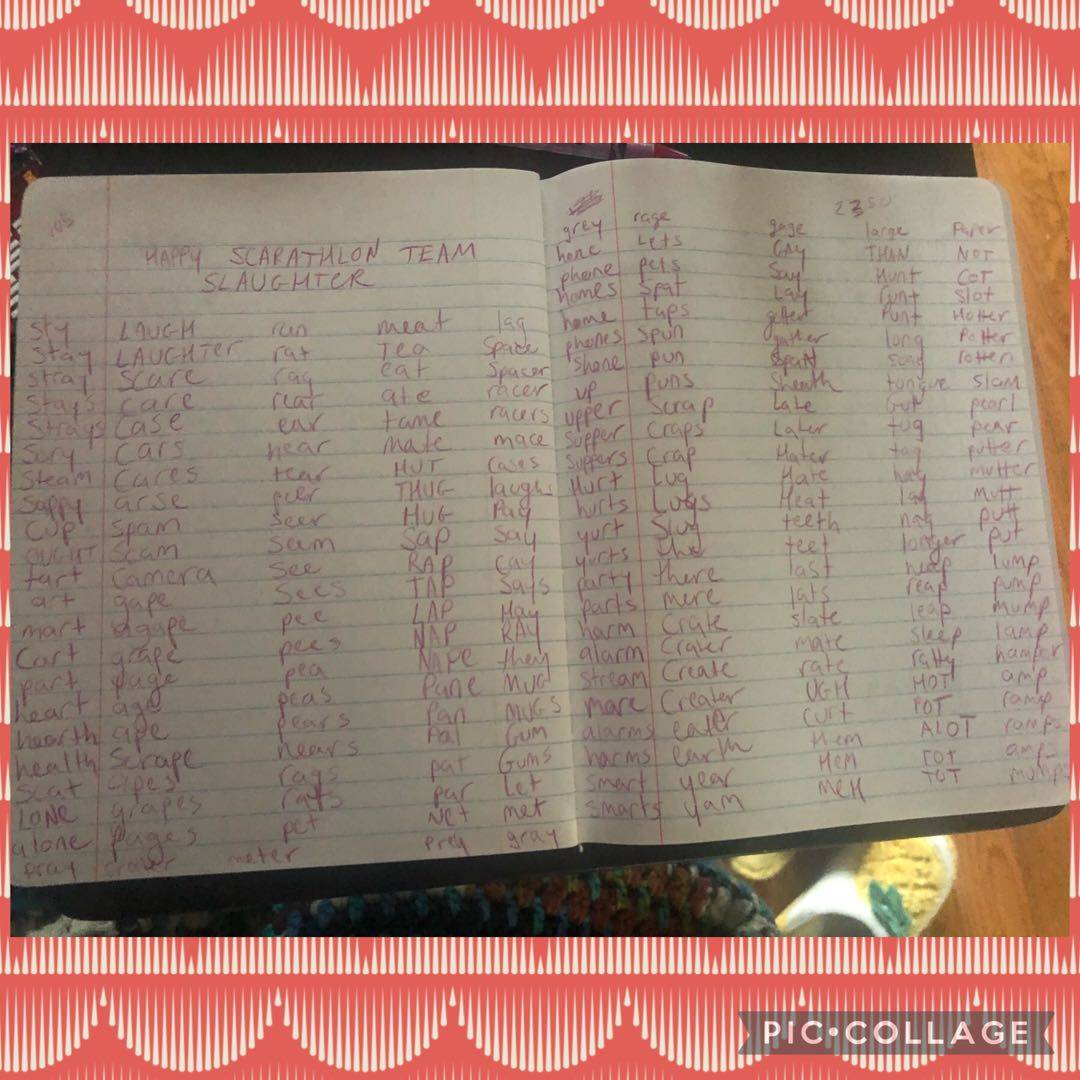 105
HAPPY SCARATHLON TEAM
SLAUGHTER
sty LAUGH run meat lag
stay LAUGHTER rat TEA Space
stray scare rag eat spacer
stays care reat ate racer
strays case ear tame racers
sury cars near mate mace
steam cares tear HUT cases
sappy arse peer THUG laughs
cup spam seer HUG Pay
scam seam SAP say
tart camera see RAP cay
art gape sees TAP says
mart agape pee LAP Hay
cart grape pees NAP RAY
part page pea NAPE they
heart age peas Pane MUG
hearth ape pears Pan MUGS
health scrape nears Pal GUM
scat apes rags pat GUMS
LONE grapes rats par let
alone pages pet Net met
pray meter prey gray
2350
grey rage gage large Paper
hone Lets GAY THAN NOT
phone pets Say Hunt COT
homes spat Lay runt slot
home taps Punt Hotter
phones spun gather long Potter
shone pun song rotten
up puns sheath tongue slam
upper scrap Late Gut pearl
supper craps Later tug pear
suppers crap Hater tag putter
Hurt Lug Hate hag mutter
hurts Lugs Heat lag mutt
yurt Slug teeth nag putt
yurts the teet longer put
party there last heap lump
parts mere lats reap pump
harm crate slate leap mump
alarm crater mate sleep lamp
stream create rate ratty hamper
mare creater UGH HOT amp
alarms eater curt POT ramp
harms earth them ALOT ramps
smart year HEM amp
smarts yam MEH TOT mumps
PIC•COLLAGE